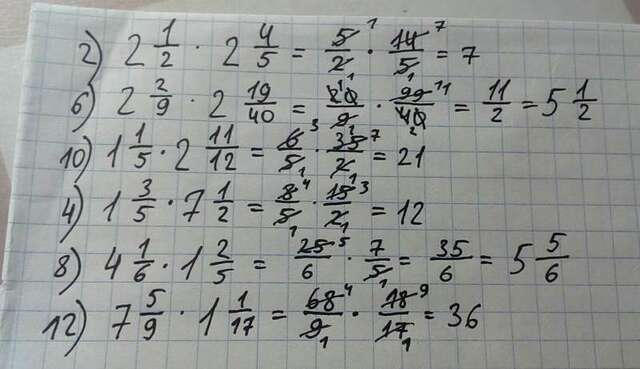 2) 2 1/2 · 2 4/5 = 5/2 · 14/5 = 7
6) 2 2/9 · 2 19/40 = 20/9 · 99/40 = 11/2 = 5 1/2
10) 1 1/5 · 2 11/12 = 6/5 · 35/2 = 21
4) 1 3/5 · 7 1/2 = 8/5 · 15/2 = 12
8) 4 1/6 · 1 2/5 = 25/6 · 7/5 = 35/6 = 5 5/6
12) 7 5/9 · 1 1/17 = 68/9 · 18/17 = 36